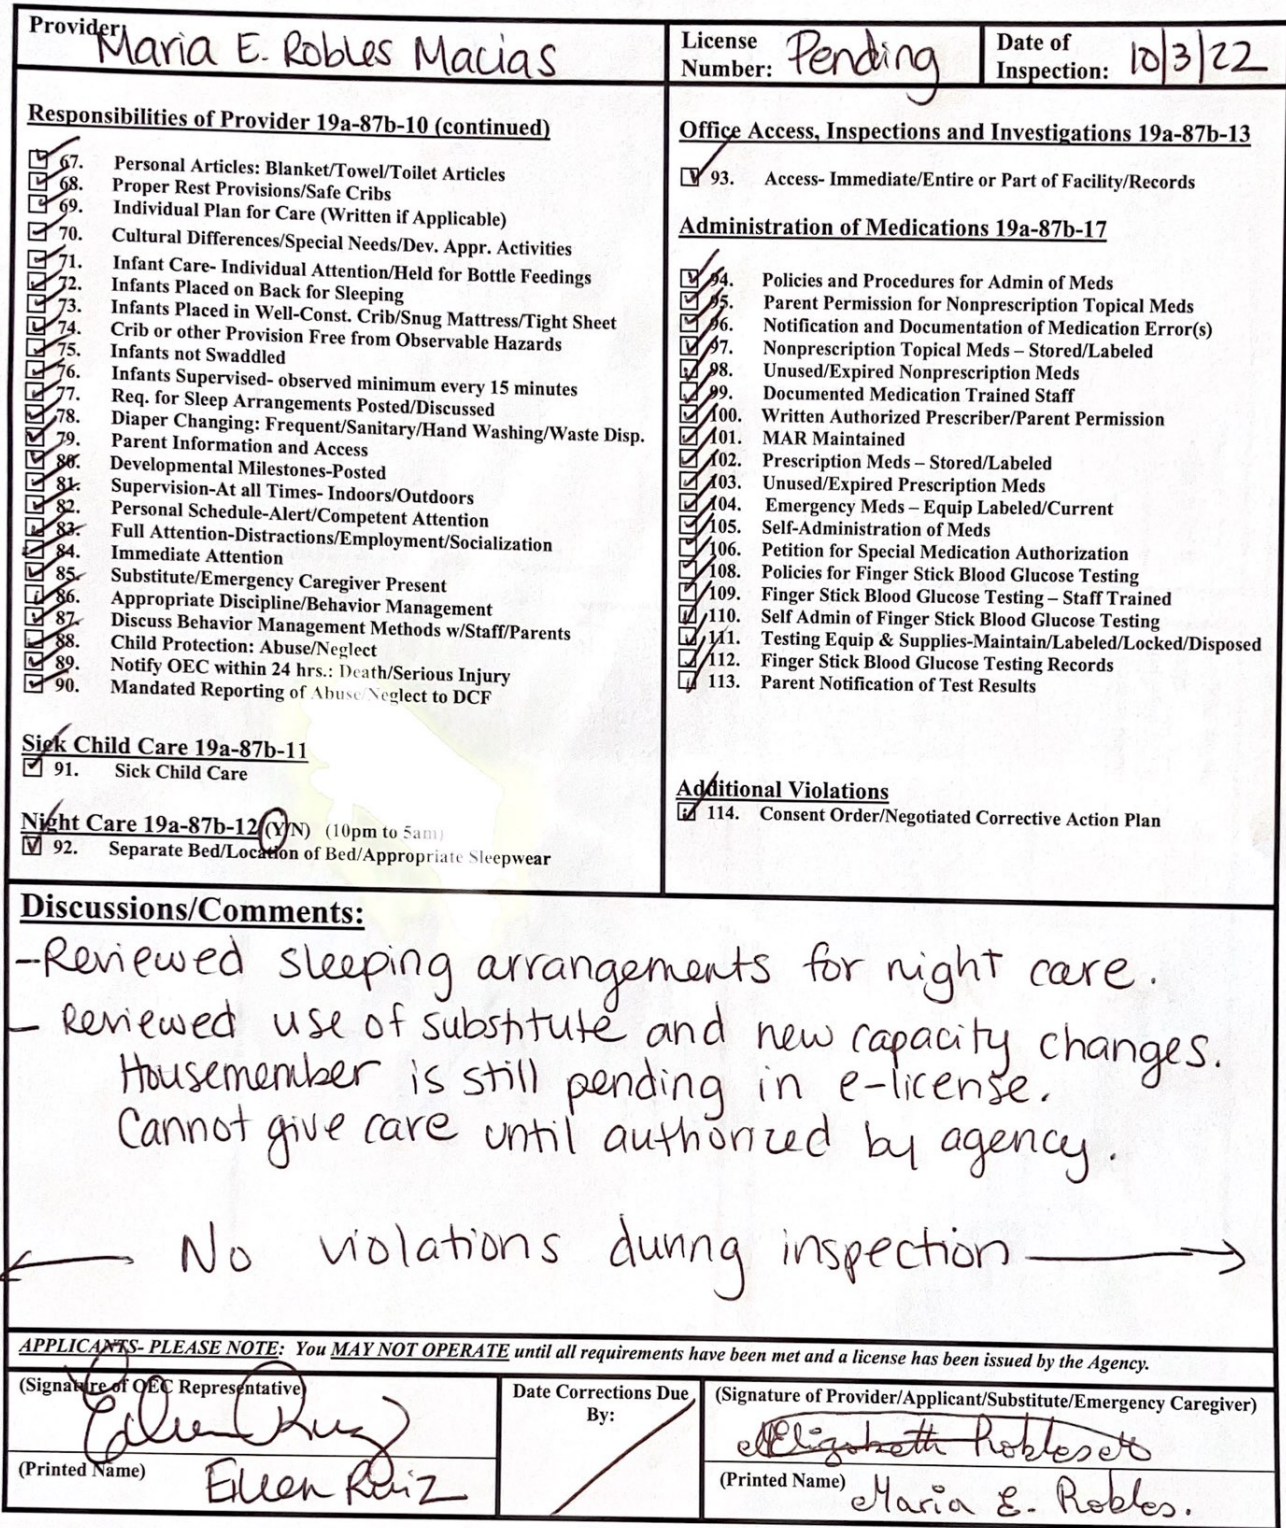 Provider: Maria E. Robles Macias
License Number: Pending
Date of Inspection: 10/3/22
Responsibilities of Provider 19a-87b-10 (continued)
67. Personal Articles: Blanket/Towel/Toilet Articles
68. Proper Rest Provisions/Safe Cribs
69. Individual Plan for Care (Written if Applicable)
70. Cultural Differences/Special Needs/Dev. Appr. Activities
71. Infant Care- Individual Attention/Held for Bottle Feedings
72. Infants Placed on Back for Sleeping
73. Infants Placed in Well-Const. Crib/Snug Mattress/Tight Sheet
74. Crib or other Provision Free from Observable Hazards
75. Infants not Swaddled
76. Infants Supervised- observed minimum every 15 minutes
77. Req. for Sleep Arrangements Posted/Discussed
78. Diaper Changing: Frequent/Sanitary/Hand Washing/Waste Disp.
79. Parent Information and Access
80. Developmental Milestones-Posted
81. Supervision-At all Times- Indoors/Outdoors
82. Personal Schedule-Alert/Competent Attention
83. Full Attention-Distractions/Employment/Socialization
84. Immediate Attention
85. Substitute/Emergency Caregiver Present
86. Appropriate Discipline/Behavior Management
87. Discuss Behavior Management Methods w/Staff/Parents
88. Child Protection: Abuse/Neglect
89. Notify OEC within 24 hrs.: Death/Serious Injury
90. Mandated Reporting of Abuse/Neglect to DCF
Sick Child Care 19a-87b-11
91. Sick Child Care
Night Care 19a-87b-12 (Y/N) (10pm to 5am)
92. Separate Bed/Location of Bed/Appropriate Sleepwear
Office Access, Inspections and Investigations 19a-87b-13
93. Access- Immediate/Entire or Part of Facility/Records
Administration of Medications 19a-87b-17
94. Policies and Procedures for Admin of Meds
95. Parent Permission for Nonprescription Topical Meds
96. Notification and Documentation of Medication Error(s)
97. Nonprescription Topical Meds – Stored/Labeled
98. Unused/Expired Nonprescription Meds
99. Documented Medication Trained Staff
100. Written Authorized Prescriber/Parent Permission
101. MAR Maintained
102. Prescription Meds – Stored/Labeled
103. Unused/Expired Prescription Meds
104. Emergency Meds – Equip Labeled/Current
105. Self-Administration of Meds
106. Petition for Special Medication Authorization
108. Policies for Finger Stick Blood Glucose Testing
109. Finger Stick Blood Glucose Testing – Staff Trained
110. Self Admin of Finger Stick Blood Glucose Testing
111. Testing Equip & Supplies-Maintain/Labeled/Locked/Disposed
112. Finger Stick Blood Glucose Testing Records
113. Parent Notification of Test Results
Additional Violations
114. Consent Order/Negotiated Corrective Action Plan
Discussions/Comments:
-Reviewed sleeping arrangements for night care.
- Reviewed use of substitute and new capacity changes.
Housemember is still pending in e-license.
Cannot give care until authorized by agency.
No violations during inspection
APPLICANTS- PLEASE NOTE: You MAY NOT OPERATE until all requirements have been met and a license has been issued by the Agency.
(Signature of OEC Representative)
Eileen Ruiz
(Printed Name) Eileen Ruiz
Date Corrections Due By:
(Signature of Provider/Applicant/Substitute/Emergency Caregiver)
(Printed Name) Maria E. Robles.